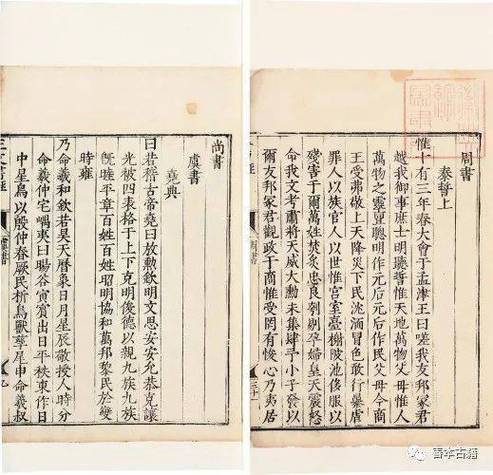 周書
泰誓上
惟十有三年春大會于孟津王曰嗟我友邦冢君
越我御事庶士明聽誓惟天地萬物父母惟人
萬物之靈亶聰明作元后元后作民父母今商
王受弗敬上天降災下民沈湎冒色敢行暴虐
罪人以族官人以世惟宮室臺榭陂池侈服以
殘害于爾萬姓焚炙忠良刳剔孕婦皇天震怒
命我文考肅將天威大勳未集肆予小子發以
爾友邦冢君觀政于商惟受罔有悛心乃夷居
三十一
尚書
虞書
堯典
曰若稽古帝堯曰放勲欽明文思安安允恭克讓
光被四表格于上下克明俊德以親九族九族
既睦平章百姓百姓昭明協和萬邦黎民於變
時雍
乃命羲和欽若昊天曆象日月星辰敬授人時分
命羲仲宅嵎夷曰暘谷寅賓出日平秩東作日
中星鳥以殷仲春厥民析鳥獸孳尾申命羲叔
虞書
善本古籍